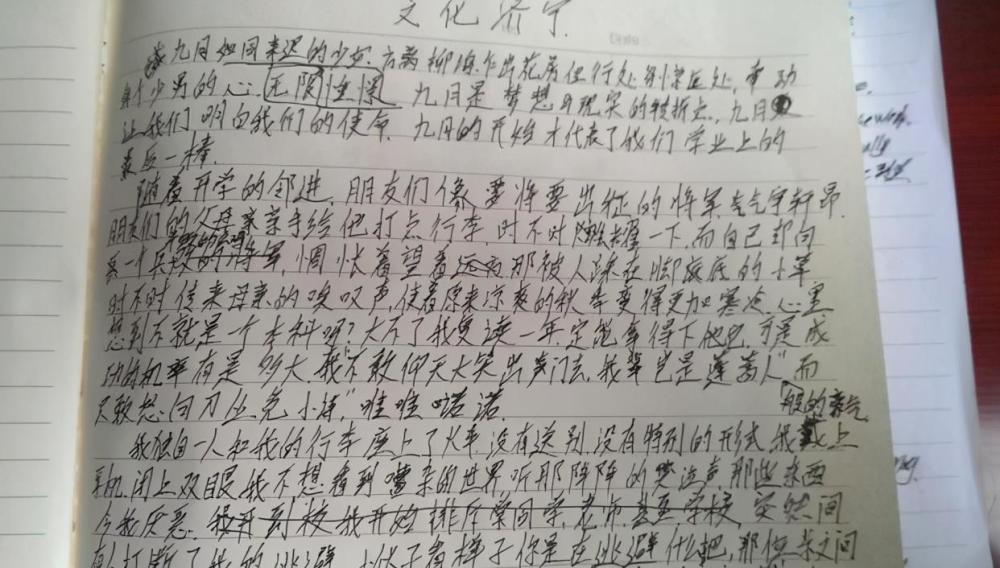 文化济宁.
九月如同来迟的少女.方离柳坞乍出花房但行处鸟惊庭处,牵动
每个少男的心:无限憧憬 九月是梦想与现实的转折点.,九月
让我们明白我们的使命 九月的开始才代表了我们学业上的
最后一棒.
随着开学的邻进,朋友们像要将要出征的将军,气宇轩昂,
朋友们的父母亲手给他打点行李,时不时一下,而自己却向
一个兵败的将军,惆怅着望着远方那被人踩在脚底底的小草
时不时传来母亲的唉叹声,使着原来凉爽的秋天变得更加寒冷 心里
想到不就是一个本科吗?大不了我复读一年,定能拿得下他也 于是成
功的机率有是多大,我"不敢仰天大笑出门去,我辈岂是蓬蒿人"而
只敢怂向刀丛觅小诗,"唯唯喏诺. 般的豪气
我独自一人和我的行李座上了火车,没有送别,没有特别的形式 我戴上
耳机,闭上双眼,我不想看到嘈杂的世界,听那阵阵的哭泣声,那些东西
令我厌恶. 我开到校我开始排斥学校 突然间
打断了我的逃避,小伙子看样子你是在逃避什么把,那位